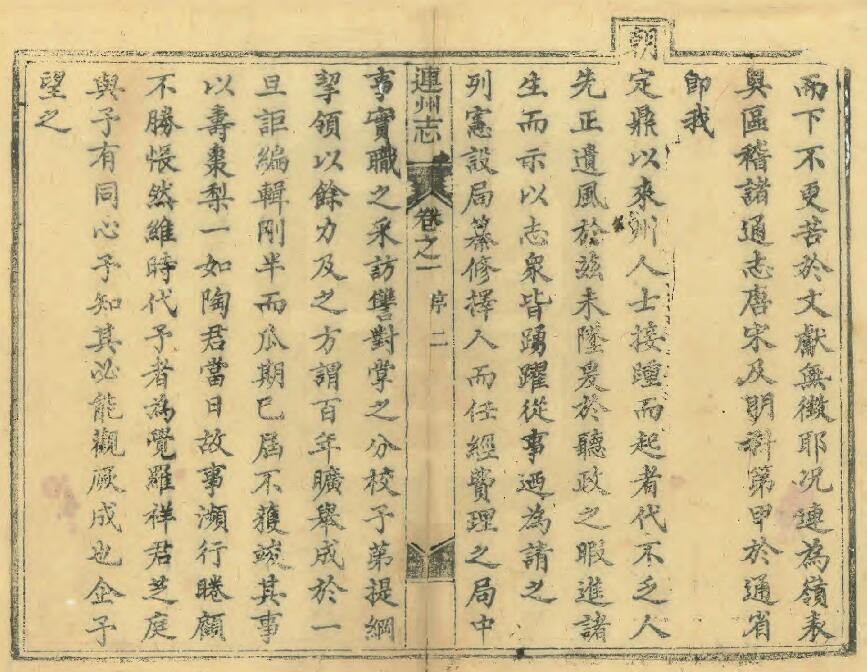 而下不更苦於文獻無徵耶况連為嶺表
奥區稽諸通志唐宋及明科第甲於通省
即我
朝定鼎以來州人士接踵而起者代不乏人
先正遺風於兹未墜爰於聽政之暇進諸
生而示以志衆皆踴躍從事迺為請之
列憲設局纂修擇人而任經費理之局中
連州志 卷之一 序 二
事實職之采訪讐對掌之分校予第提綱
挈領以餘力及之方謂百年曠舉成於一
旦詎編輯剛半而瓜期已屆不獲竣其事
以壽棗梨一如陶君當日故事瀕行睠顧
不勝悵然維時代予者為覺羅祥君芝庭
與予有同心予知其必能觀厥成也企予
望之